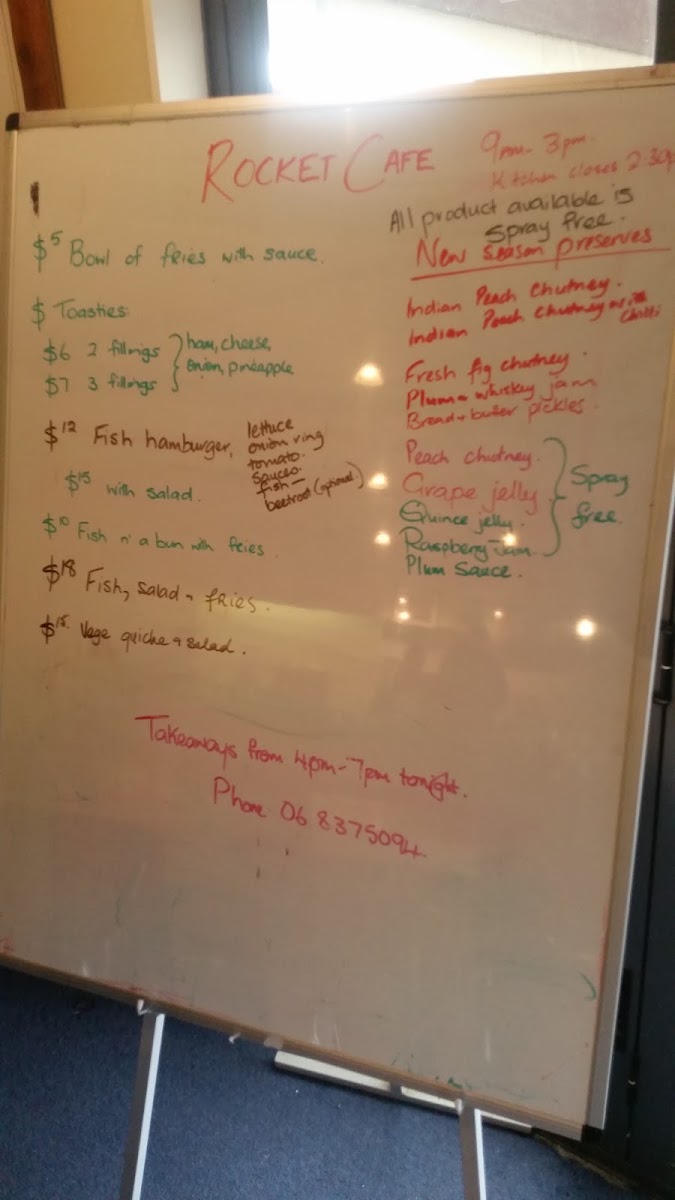 ROCKET CAFE
9pm - 3pm.
Kitchen closes 2:30p
All product available is
Spray free.
New Season preserves
$5 Bowl of fries with sauce.
$ Toasties:
$6 2 fillings
$7 3 fillings
ham, cheese,
onion, pineapple
$12 Fish hamburger,
lettuce
onion ring
tomato.
Sauces.
fish -
beetroot (optional)
$15 with salad.
$10 Fish n' a bun with fries.
$18 Fish, salad + fries.
$15. Vege quiche + salad.
Indian Peach Chutney.
Indian Peach Chutney with
chilli
Fresh fig chutney.
Plum + whiskey jam
Bread + butter pickles.
Peach chutney.
Grape jelly
Quince jelly.
Raspberry Jam.
Plum Sauce.
Spray
free.
Takeaways from 4pm - 7pm tonight.
Phone 06 8375094.